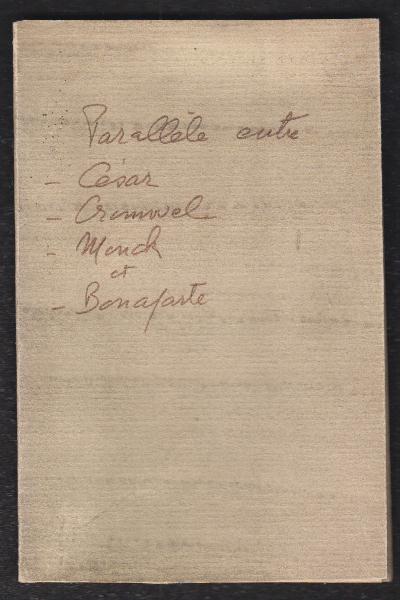 Parallèle entre
- César
- Cromwel
- Monck
et
- Bonaparte